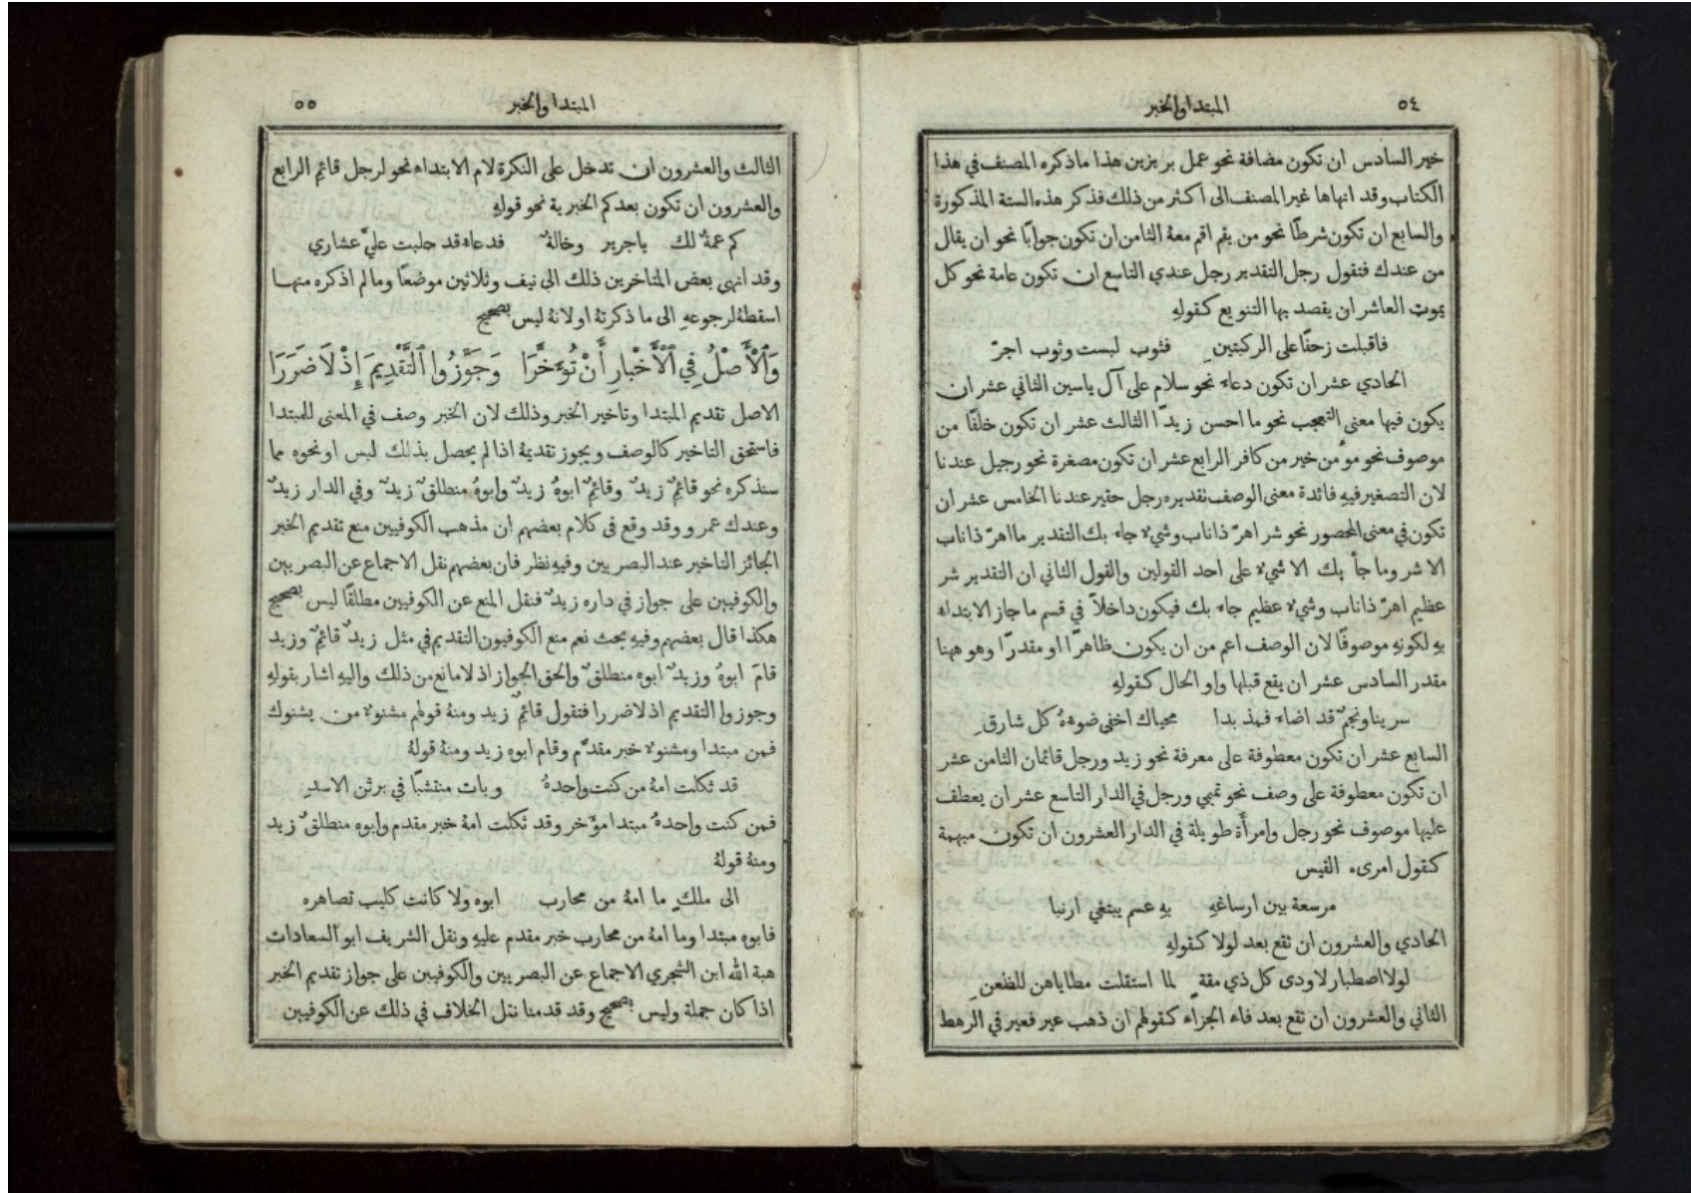 ٥٤
المبتدا والخبر
خير السادس ان تكون مضافة نحو عمل بر يزين هذا ما ذكره المصنف في هذا
الكتاب وقد انهاها غير المصنف الى أكثر من ذلك فذكر هذه الستة المذكورة
والسابع ان تكون شرطًا نحو من يقم اقم معهُ الثامن ان تكون جوابًا نحو ان يقال
من عندك فتقول رجل التقدير رجل عندي التاسع ان تكون عامة نحو كل
يموت العاشر ان يقصد بها التنويع كقولهِ
فاقبلت زحفًا على الركبتينِ فثوب لبست وثوب اجرّ
الحادي عشر ان تكون دعاء نحو سلام على آل ياسين الثاني عشر ان
يكون فيها معنى التعجب نحو ما احسن زيدًا الثالث عشر ان تكون خلفًا من
موصوف نحو مؤمن خير من كافر الرابع عشر ان تكون مصغرة نحو رجيل عندنا
لان التصغير فيهِ فائدة معنى الوصف تقديره رجل حقير عندنا الخامس عشر ان
تكون في معنى المحصور نحو شر اهرّ ذا ناب وشيء جاء بك التقدير ما اهرّ ذا ناب
الا شر وما جأ بك الا شيء على احد القولين والقول الثاني ان التقدير شر
عظيم اهرّ ذا ناب وشيء عظيم جاء بك فيكون داخلاً في قسم ما جاز الابتداء
بهِ لكونهِ موصوفًا لان الوصف اعم من ان يكون ظاهرًا او مقدرًا وهو ههنا
مقدر السادس عشر ان يقع قبلها واو الحال كقولهِ
سرينا ونجمٌ قد اضاء فمذ بدا محياك اخفى ضوءهُ كل شارقِ
السابع عشر ان تكون معطوفة على معرفة نحو زيد ورجل قائمان الثامن عشر
ان تكون معطوفة على وصف نحو تميمي ورجل في الدار التاسع عشر ان يعطف
عليها موصوف نحو رجل وامرأة طويلة في الدار العشرون ان تكون مبهمة
كقول امرىء القيس
مرسعة بين ارساغهِ بهِ عسم يبتغي ارنبا
الحادي والعشرون ان تقع بعد لولا كقولهِ
لولا اصطبار لاودى كل ذي مقةٍ لما استقلت مطاياهن للظعنِ
الثاني والعشرون ان تقع بعد فاء الجزاء كقولهم ان ذهب عير فعير في الرهط
المبتدا والخبر
٥٥
الثالث والعشرون ان تدخل على النكرة لام الابتداء نحو لرجل قائم الرابع
والعشرون ان تكون بعد كم الخبرية نحو قولهِ
كم عمةٌ لك ياجرير وخالةٌ فدعاء قد حلبت عليَّ عشاري
وقد انهى بعض المتاخرين ذلك الى نيف وثلاثين موضعًا وما لم اذكره منهـا
اسقطتهُ لرجوعهِ الى ما ذكرتهُ او لانهُ ليس بصحيح
وَٱلْأَصْلُ فِي ٱلْأَخْبَارِ أَنْ تُوءَخَّرَا وَجَوَّزُوا ٱلتَّقْدِيمَ إِذْ لاَ ضَرَرَا
الاصل تقديم المبتدا وتاخير الخبر وذلك لان الخبر وصف في المعنى للمبتدا
فاستحق التاخير كالوصف ويجوز تقديمهُ اذا لم يحصل بذلك لبس او نحوه مما
سنذكره نحو قائمٌ زيدٌ وقائمٌ ابوهُ زيدٌ وابوهُ منطلقٌ زيدٌ وفي الدار زيدٌ
وعندك عمرو وقد وقع فى كلام بعضهم ان مذهب الكوفيين منع تقديم الخبر
الجائز التاخير عند البصريين وفيهِ نظر فان بعضهم نقل الاجماع عن البصريين
والكوفيين على جواز في داره زيدٌ فنقل المنع عن الكوفيين مطلقًا ليس بصحيح
هكذا قال بعضهم وفيهِ بحث نعم منع الكوفيون التقديم في مثل زيدٌ قائمٌ وزيد
قامَ ابوهُ وزيدٌ ابوه منطلقٌ والحق الجواز اذ لا مانع من ذلك واليهِ اشار بقولهِ
وجوزوا التقديم اذ لا ضررا فتقول قائمٌ زيد ومنهُ قولهم مشنوء من يشنوك
فمن مبتدا ومشنوء خبر مقدَّم وقام ابوه زيد ومنهُ قولهُ
قد ثكلت امهُ من كنت واحدهُ وبات منتشبًا في برثن الاسدِ
فمن كنت واحدهُ مبتدا مؤخر وقد ثكلت امهُ خبر مقدم وابوه منطلقٌ زيد
ومنهُ قولهُ
الى ملكٍ ما امهُ من محارب ابوه ولا كانت كليب تصاهره
فابوه مبتدا وما امهُ من محارب خبر مقدم عليهِ ونقل الشريف ابو السعادات
هبة الله ابن الشجري الاجماع عن البصريين والكوفيين على جواز تقديم الخبر
اذا كان جملة وليس بصحيح وقد قدمنا نقل الخلاف في ذلك عن الكوفيين